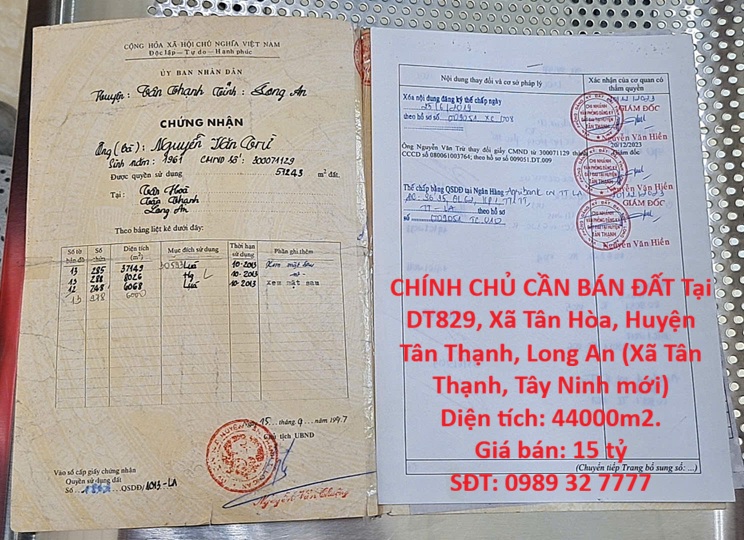 CỘNG HÒA XÃ HỘI CHỦ NGHĨA VIỆT NAM
Độc lập - Tự do - Hạnh phúc
ỦY BAN NHÂN DÂN
Huyện: Tân Thạnh Tỉnh: Long An
CHỨNG NHẬN
Ông (bà): Nguyễn Văn Trừ
Sinh năm: 1961 CMND số: 300071129
Được quyền sử dụng 51243 m² đất.
Tại: Tân Hoà
Tân Thạnh
Long An
Theo bảng liệt kê dưới đây:
Số tờ bản đồ Số thửa Diện tích (m²) Mục đích sử dụng Thời hạn sử dụng Phần ghi thêm
13 285 37149 Lúa 10-2013 Xem mặt sau
13 288 8026 10-2013
12 248 6068 Lúa 10-2013 xem mặt sau
13 978 6000
15 tháng 9 năm 1997
Chủ tịch UBND
Vào sổ cấp giấy chứng nhận
Quyền sử dụng đất
Số QSDĐ/1013-LA
Nội dung thay đổi và cơ sở pháp lý
Xác nhận của cơ quan có thẩm quyền
Xóa nội dung đăng ký thế chấp ngày
theo hồ sơ số 009051.XC.1708
GIÁM ĐỐC
CHI NHÁNH
VĂN PHÒNG ĐĂNG KÝ
ĐẤT ĐAI TẠI HUYỆN
TÂN THẠNH
Nguyễn Văn Hiển
Ông Nguyễn Văn Trừ thay đổi giấy CMND từ 300071129 thành
CCCD số 080061003764; theo hồ sơ số 009051.DT.009
20/12/2023
Giám đốc
CHI NHÁNH
VĂN PHÒNG ĐĂNG KÝ
ĐẤT ĐAI TẠI HUYỆN
TÂN THẠNH
Nguyễn Văn Hiển
Thế chấp bằng QSDĐ tại Ngân Hàng Agribank CN TT LA
TT - LA theo hồ sơ
số 009051.TC.010
GIÁM ĐỐC
CHI NHÁNH
VĂN PHÒNG ĐĂNG KÝ
ĐẤT ĐAI TẠI HUYỆN
TÂN THẠNH
Nguyễn Văn Hiển
CHÍNH CHỦ CẦN BÁN ĐẤT Tại
DT829, Xã Tân Hòa, Huyện
Tân Thạnh, Long An (Xã Tân
Thạnh, Tây Ninh mới)
Diện tích: 44000m2.
Giá bán: 15 tỷ
SĐT: 0989 32 7777
(Chuyển tiếp Trang bổ sung số: ...)